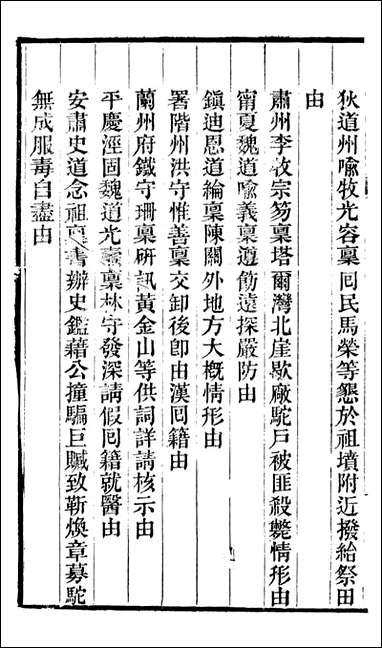 狄道州喩牧光容稟囘民馬榮等懇於祖墳附近撥給祭田
由
肅州李牧宗笏稟塔爾灣北崖歇廠駝戸被匪殺斃情形由
甯夏魏道喩義稟遵飭遠探嚴防由
鎭迪恩道綸稟陳關外地方大槪情形由
署階州洪守惟善稟交卸後卽由漢囘籍由
蘭州府鐵守珊稟硏訊黃金山等供詞詳請核示由
平慶涇固魏道光燾稟林守發深請假囘籍就醫由
安肅史道念祖稟書辦史鑑藉公撞騙巨贓致靳煥章募駝
無成服毒自盡由